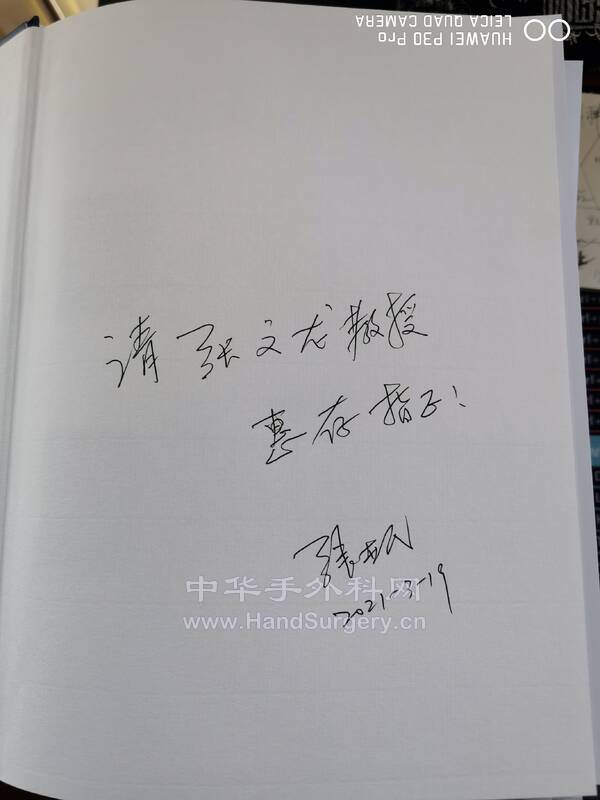 HUAWEI P30 Pro
LEICA QUAD CAMERA
请张文龙教授
惠存指正!
张
2021-3-19
中华手外科网
www.HandSurgery.cn